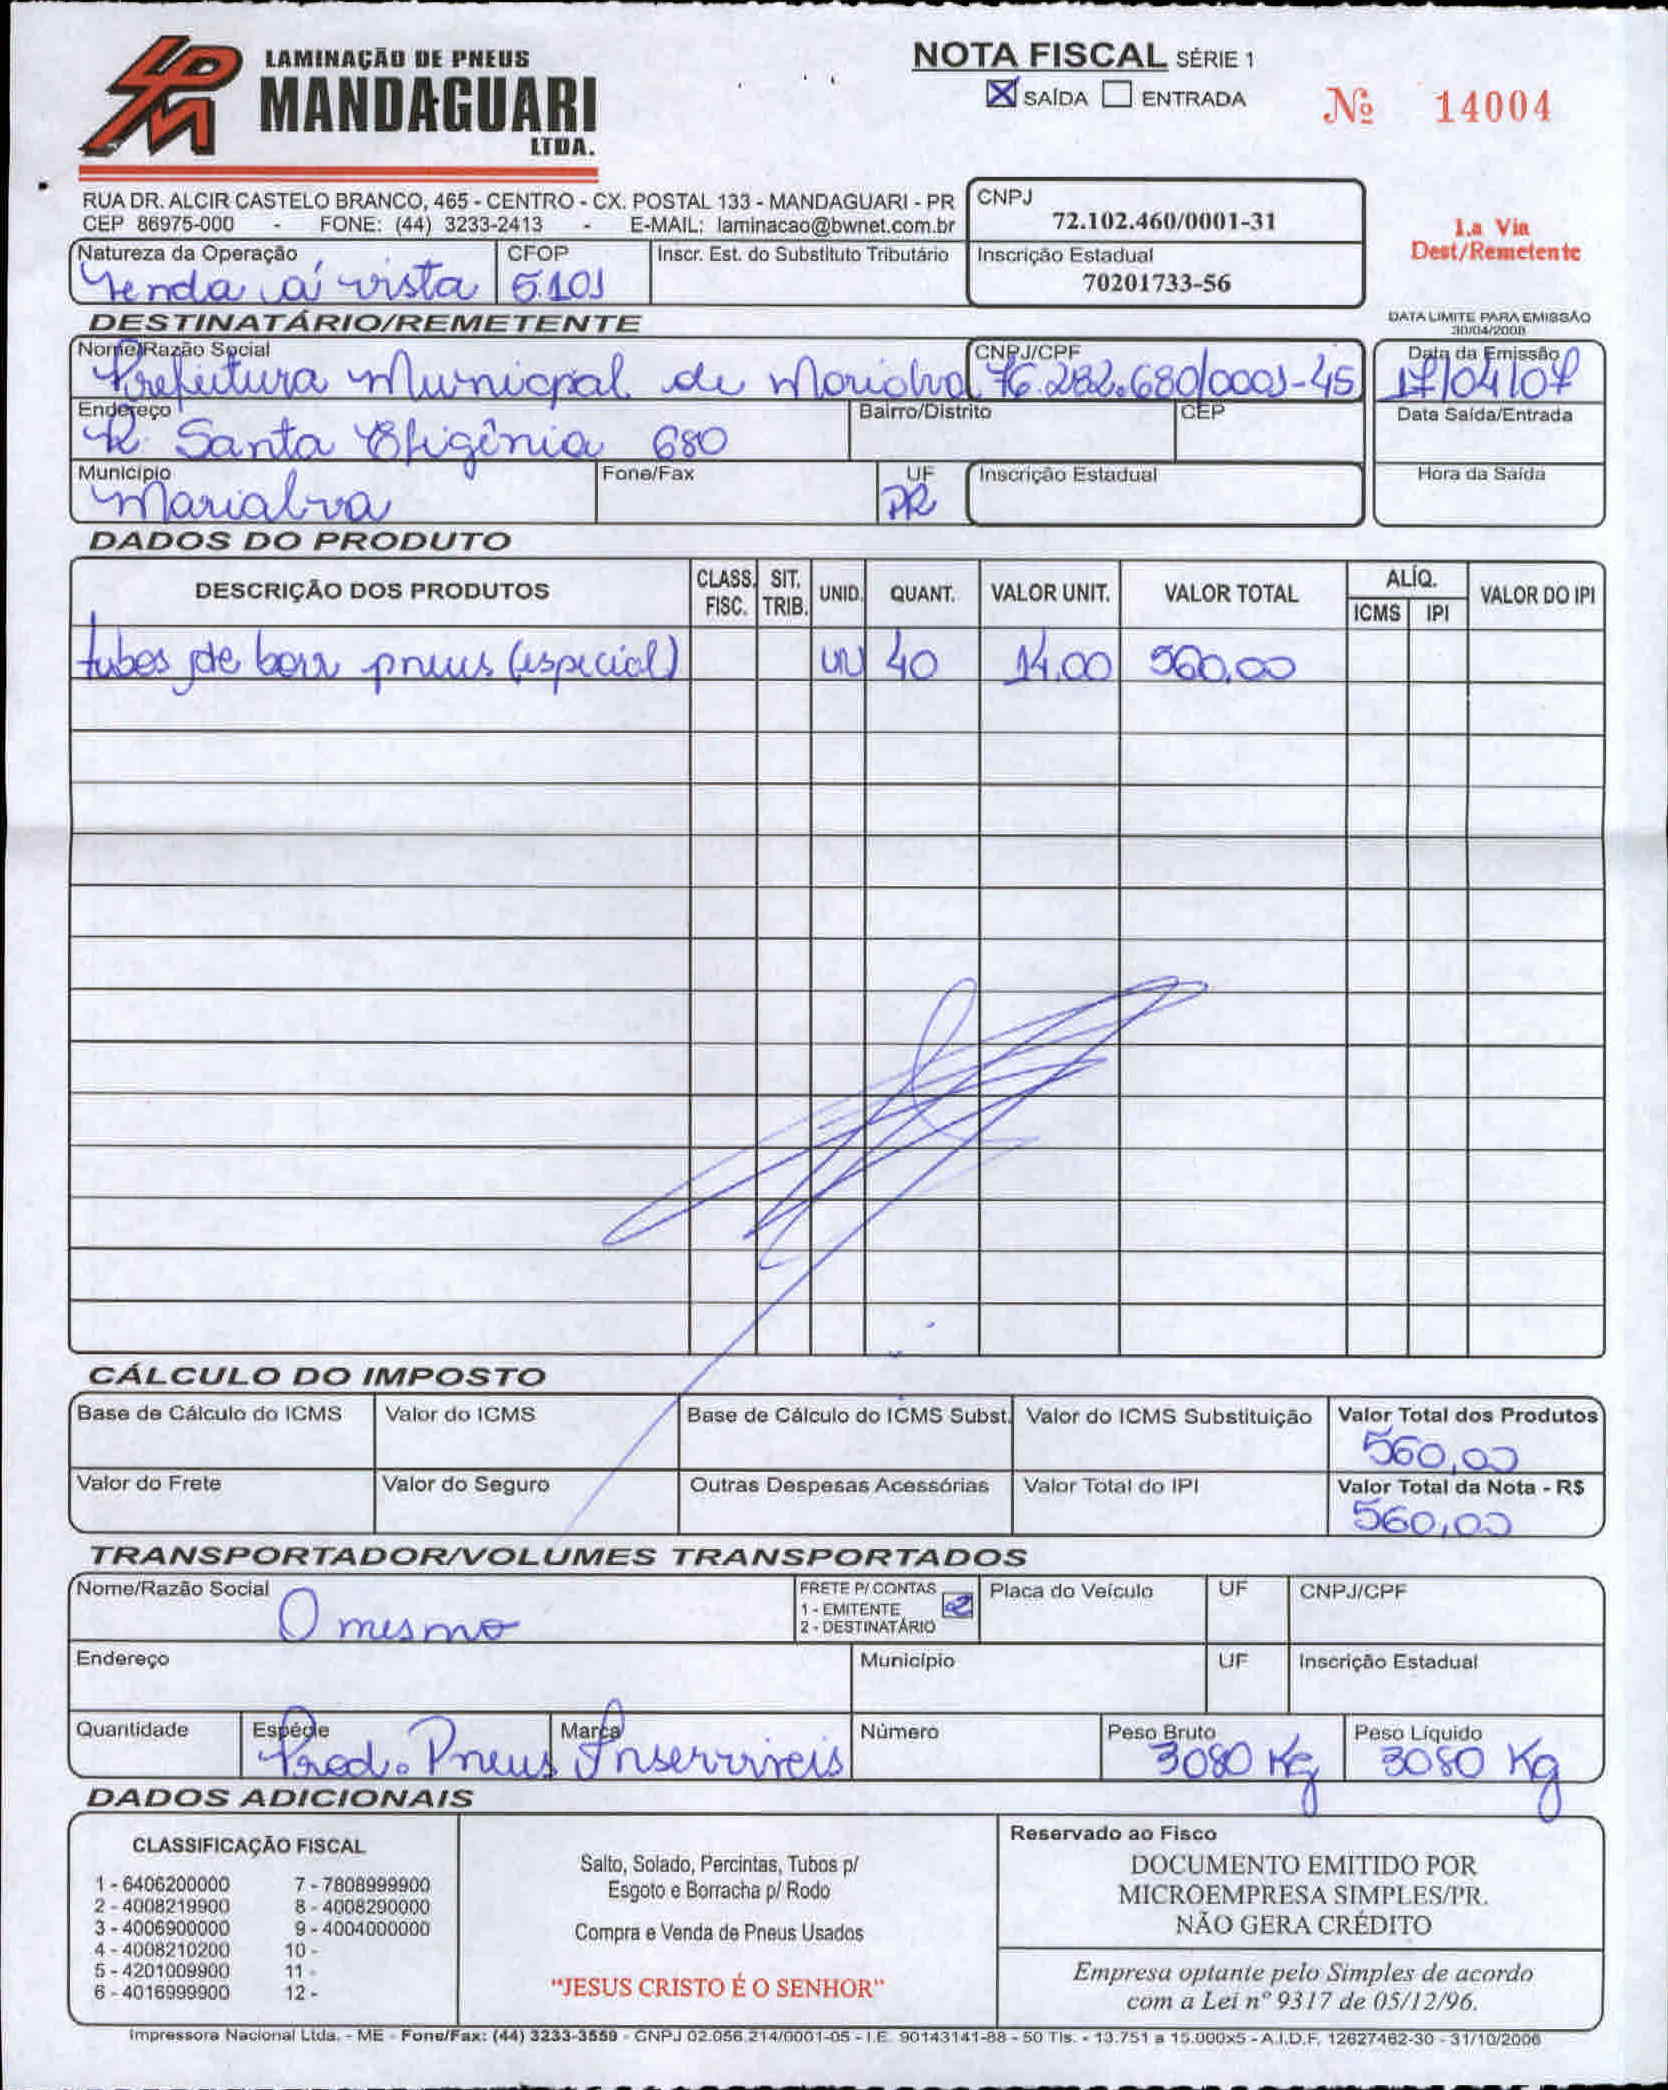 LPM
LAMINAÇÃO DE PNEUS
MANDAGUARI
LTDA.
NOTA FISCAL SÉRIE 1
X SAÍDA ENTRADA
Nº 14004
RUA DR. ALCIR CASTELO BRANCO, 465 - CENTRO - CX. POSTAL 133 - MANDAGUARI - PR
CEP 86975-000 - FONE: (44) 3233-2413 - E-MAIL: laminacao@bwnet.com.br
CNPJ
72.102.460/0001-31
1.a Via
Dest/Remetente
Natureza da Operação CFOP Inscr. Est. do Substituto Tributário Inscrição Estadual
Venda á vista 5.101 70201733-56
DATA LIMITE PARA EMISSÃO
30/04/2008
DESTINATÁRIO/REMETENTE
Nome/Razão Social CNPJ/CPF Data da Emissão
Prefeitura Municipal de Marialva 76.282.680/0001-45 17/04/07
Endereço Bairro/Distrito CEP Data Saída/Entrada
R. Santa Efigênia 680
Município Fone/Fax UF Inscrição Estadual Hora da Saída
Marialva PR
DADOS DO PRODUTO
DESCRIÇÃO DOS PRODUTOS CLASS. FISC. SIT. TRIB. UNID. QUANT. VALOR UNIT. VALOR TOTAL ALÍQ. ICMS IPI VALOR DO IPI
tubos de borr pneus (especial) UN 40 14,00 560,00
CÁLCULO DO IMPOSTO
Base de Cálculo do ICMS Valor do ICMS Base de Cálculo do ICMS Subst. Valor do ICMS Substituição Valor Total dos Produtos
560,00
Valor do Frete Valor do Seguro Outras Despesas Acessórias Valor Total do IPI Valor Total da Nota - R$
560,00
TRANSPORTADOR/VOLUMES TRANSPORTADOS
Nome/Razão Social FRETE P/ CONTAS Placa do Veículo UF CNPJ/CPF
O mesmo 1 - EMITENTE 2
2 - DESTINATÁRIO
Endereço Município UF Inscrição Estadual
Quantidade Espécie Marca Número Peso Bruto Peso Líquido
Prod. Pneus Inservíveis 3080 Kg 3080 Kg
DADOS ADICIONAIS
CLASSIFICAÇÃO FISCAL
1 - 6406200000 7 - 7808999900
2 - 4008219900 8 - 4008290000
3 - 4006900000 9 - 4004000000
4 - 4008210200 10 -
5 - 4201009900 11 -
6 - 4016999900 12 -
Salto, Solado, Percintas, Tubos p/
Esgoto e Borracha p/ Rodo
Compra e Venda de Pneus Usados
"JESUS CRISTO É O SENHOR"
Reservado ao Fisco
DOCUMENTO EMITIDO POR
MICROEMPRESA SIMPLES/PR.
NÃO GERA CRÉDITO
Empresa optante pelo Simples de acordo
com a Lei nº 9317 de 05/12/96.
Impressora Nacional Ltda. - ME - Fone/Fax: (44) 3233-3559 - CNPJ 02.056.214/0001-05 - I.E. 90143141-88 - 50 Tls. - 13.751 a 15.000x5 - A.I.D.F. 12627462-30 - 31/10/2006